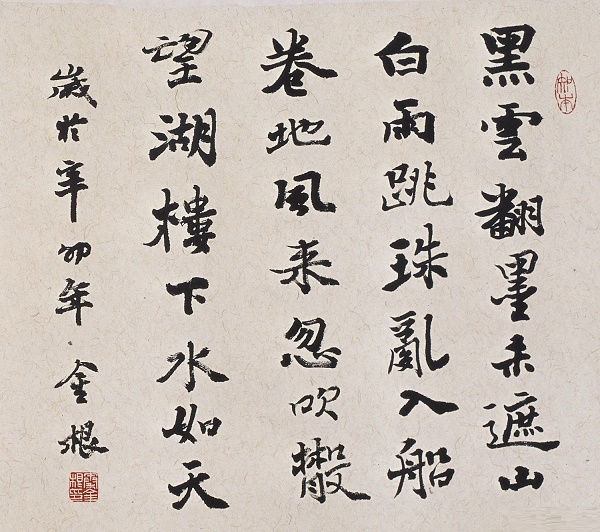 黑雲翻墨未遮山
白雨跳珠亂入船
卷地風来忽吹散
望湖樓下水如天
歲於辛卯年金根